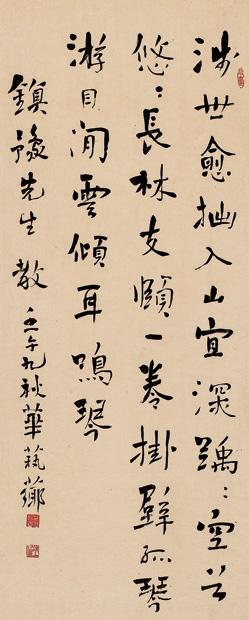 涉世愈拙入山宜深踽〻空谷
悠〻長林支頤一卷掛壁孤琴
游目閒雲傾耳鳴琴
鎮豫先生教 壬午九秋華蓺薌